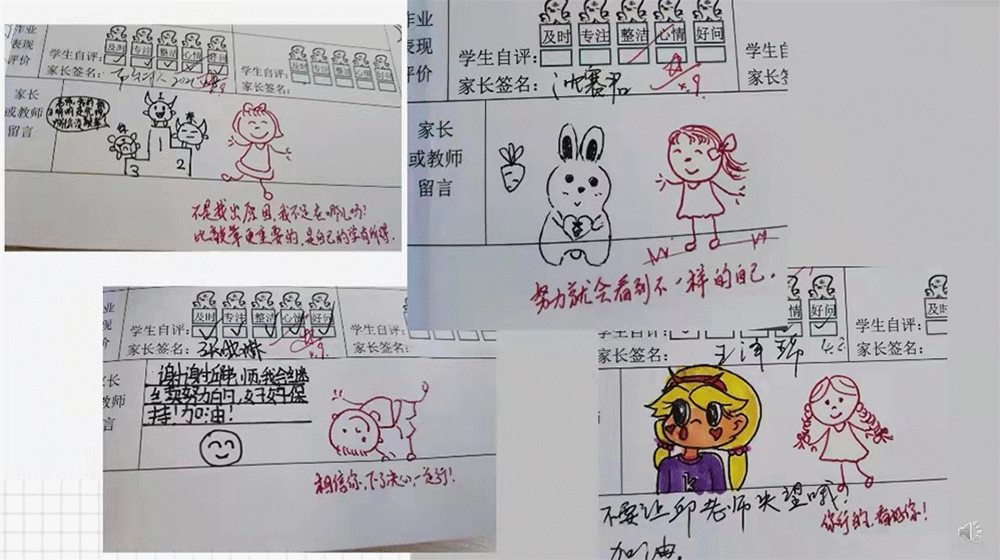 作业
表现
评价
学生自评:
及时 专注 整洁 心情 好问
家长签名:
4.9.
学生自评:
及时 专注 整洁 心情 好问
家长签名:
家长
或教师
留言
3
1
2
不是找出原因,我不足在哪儿吗?
比教学更重要的,是自己的学有所得.
作业
表现
评价
学生自评:
及时 专注 整洁 心情 好问
家长签名:
4.9.
学生自评:
家长签名:
家长
或教师
留言
努力就会看到不一样的自己.
业
现
价
学生自评:
及时 专注 整洁 心情 好问
家长签名:
4.9.
学生自评:
及时 专注
家长签名:
长
教师
言
谢谢邱老师,我会继
续努力的,好好保
持!加油!
相信你,下了决心,一定行!
学生自评:
情 好问
家长签名:
学生自评:
及
家长签名:
不要让邱老师失望哦!
加油.
你行的,看好你!